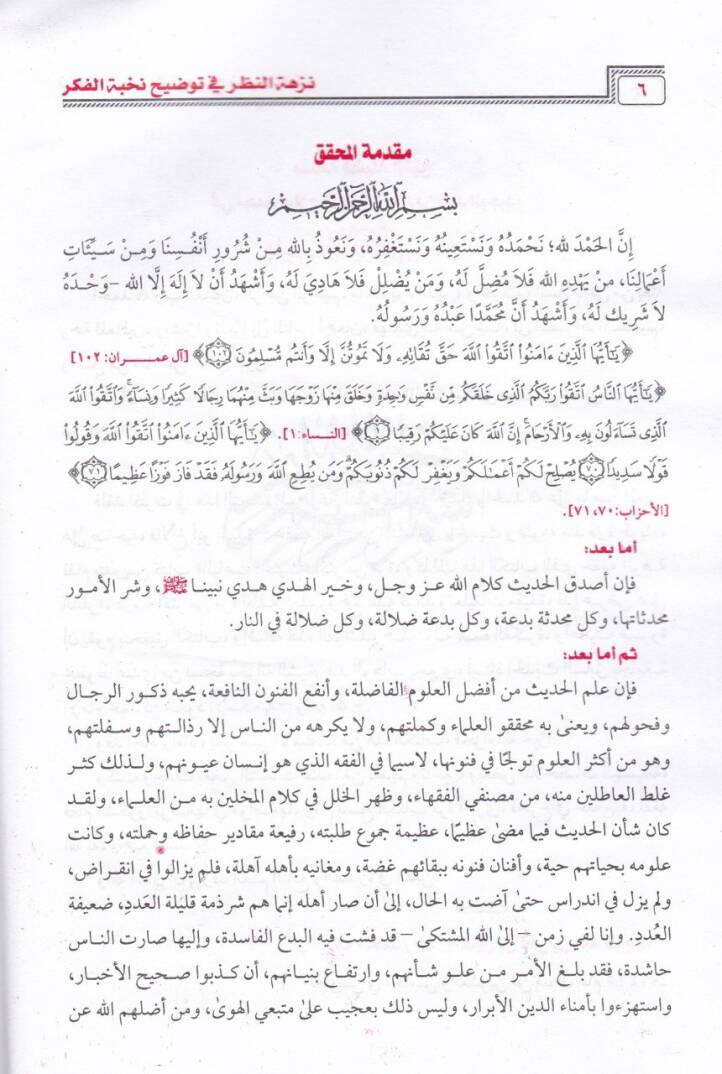 ٦
نزهة النظر في توضيح نخبة الفكر
مقدمة المحقق
بسم الله الرحمن الرحيم
إِنَّ الحَمْدَ لله؛ نَحْمَدُهُ وَنَسْتَعِينُهُ وَنَسْتَغْفِرُهُ، وَنَعُوذُ بِالله مِنْ شُرُورِ أَنْفُسِنَا وَمِنْ سَيِّئَاتِ
أَعْمَالِنَا، منْ يَهْدِهِ الله فَلَا مُضِلَّ لَهُ، وَمَنْ يُضْلِلْ فَلَا هَادِيَ لَهُ، وَأَشْهَدُ أَنْ لَا إِلَهَ إِلَّا الله –وَحْدَهُ
لَا شَرِيكَ لَهُ، وَأَشْهَدُ أَنَّ مُحَمَّدًا عَبْدُهُ وَرَسُولُهُ.
﴿يَٰٓأَيُّهَا ٱلَّذِينَ ءَامَنُوا۟ ٱتَّقُوا۟ ٱللَّهَ حَقَّ تُقَاتِهِۦ وَلَا تَمُوتُنَّ إِلَّا وَأَنتُم مُّسْلِمُونَ ۝١٠٢﴾ [آل عمـــران: ١٠٢]
﴿يَٰٓأَيُّهَا ٱلنَّاسُ ٱتَّقُوا۟ رَبَّكُمُ ٱلَّذِى خَلَقَكُم مِّن نَّفْسٍ وَٰحِدَةٍ وَخَلَقَ مِنْهَا زَوْجَهَا وَبَثَّ مِنْهُمَا رِجَالًا كَثِيرًا وَنِسَآءً ۚ وَٱتَّقُوا۟ ٱللَّهَ
ٱلَّذِى تَسَآءَلُونَ بِهِۦ وَٱلْأَرْحَامَ ۚ إِنَّ ٱللَّهَ كَانَ عَلَيْكُمْ رَقِيبًا ۝١﴾ [النساء:١]. ﴿يَٰٓأَيُّهَا ٱلَّذِينَ ءَامَنُوا۟ ٱتَّقُوا۟ ٱللَّهَ وَقُولُوا۟
قَوْلًا سَدِيدًا ۝٧٠ يُصْلِحْ لَكُمْ أَعْمَٰلَكُمْ وَيَغْفِرْ لَكُمْ ذُنُوبَكُمْ ۗ وَمَن يُطِعِ ٱللَّهَ وَرَسُولَهُۥ فَقَدْ فَازَ فَوْزًا عَظِيمًا ۝٧١﴾
[الأحزاب:٧٠، ٧١].
أما بعد:
فإن أصدق الحديث كلام الله عز وجل، وخير الهدي هدي نبينا ﷺ، وشر الأمور
محدثاتها، وكل محدثة بدعة، وكل بدعة ضلالة، وكل ضلالة في النار.
ثم أما بعد:
فإن علم الحديث من أفضل العلوم الفاضلة، وأنفع الفنون النافعة، يحبه ذكور الرجال
وفحولهم، ويعنىٰ به محققو العلماء وكملتهم، ولا يكرهه من الناس إلا رذالتهم وسفلتهم،
وهو من أكثر العلوم تولجًا في فنونها، لاسيما في الفقه الذي هو إنسان عيونهم، ولـذلك كثر
غلط العاطلين منه، من مصنفي الفقهاء، وظهر الخلل في كلام المخلين به من العلـماء، ولقد
كان شأن الحديث فيما مضىٰ عظيمًا، عظيمة جموع طلبته، رفيعة مقادير حفاظه وحملته، وكانت
علومه بحياتهم حية، وأفنان فنونه ببقائهم غضة، ومغانيه بأهله آهلة، فلم يزالوا في انقراض،
ولم يزل في اندراس حتىٰ آضت به الحال، إلىٰ أن صار أهله إنما هم شرذمة قليلة العَددِ، ضعيفة
العُددِ. وإنا لفي زمن – إلىٰ الله المشتكىٰ – قد فشت فيه البدع الفاسدة، وإليها صارت الناس
حاشدة، فقد بلغ الأمر مـن علـو شأنهم، وارتفاع بنيانهم، أن كذبوا صحيح الأخبار،
واستهزءوا بأمناء الدين الأبرار، وليس ذلك بعجيب علىٰ متبعي الهوىٰ، ومن أضلهم الله عن